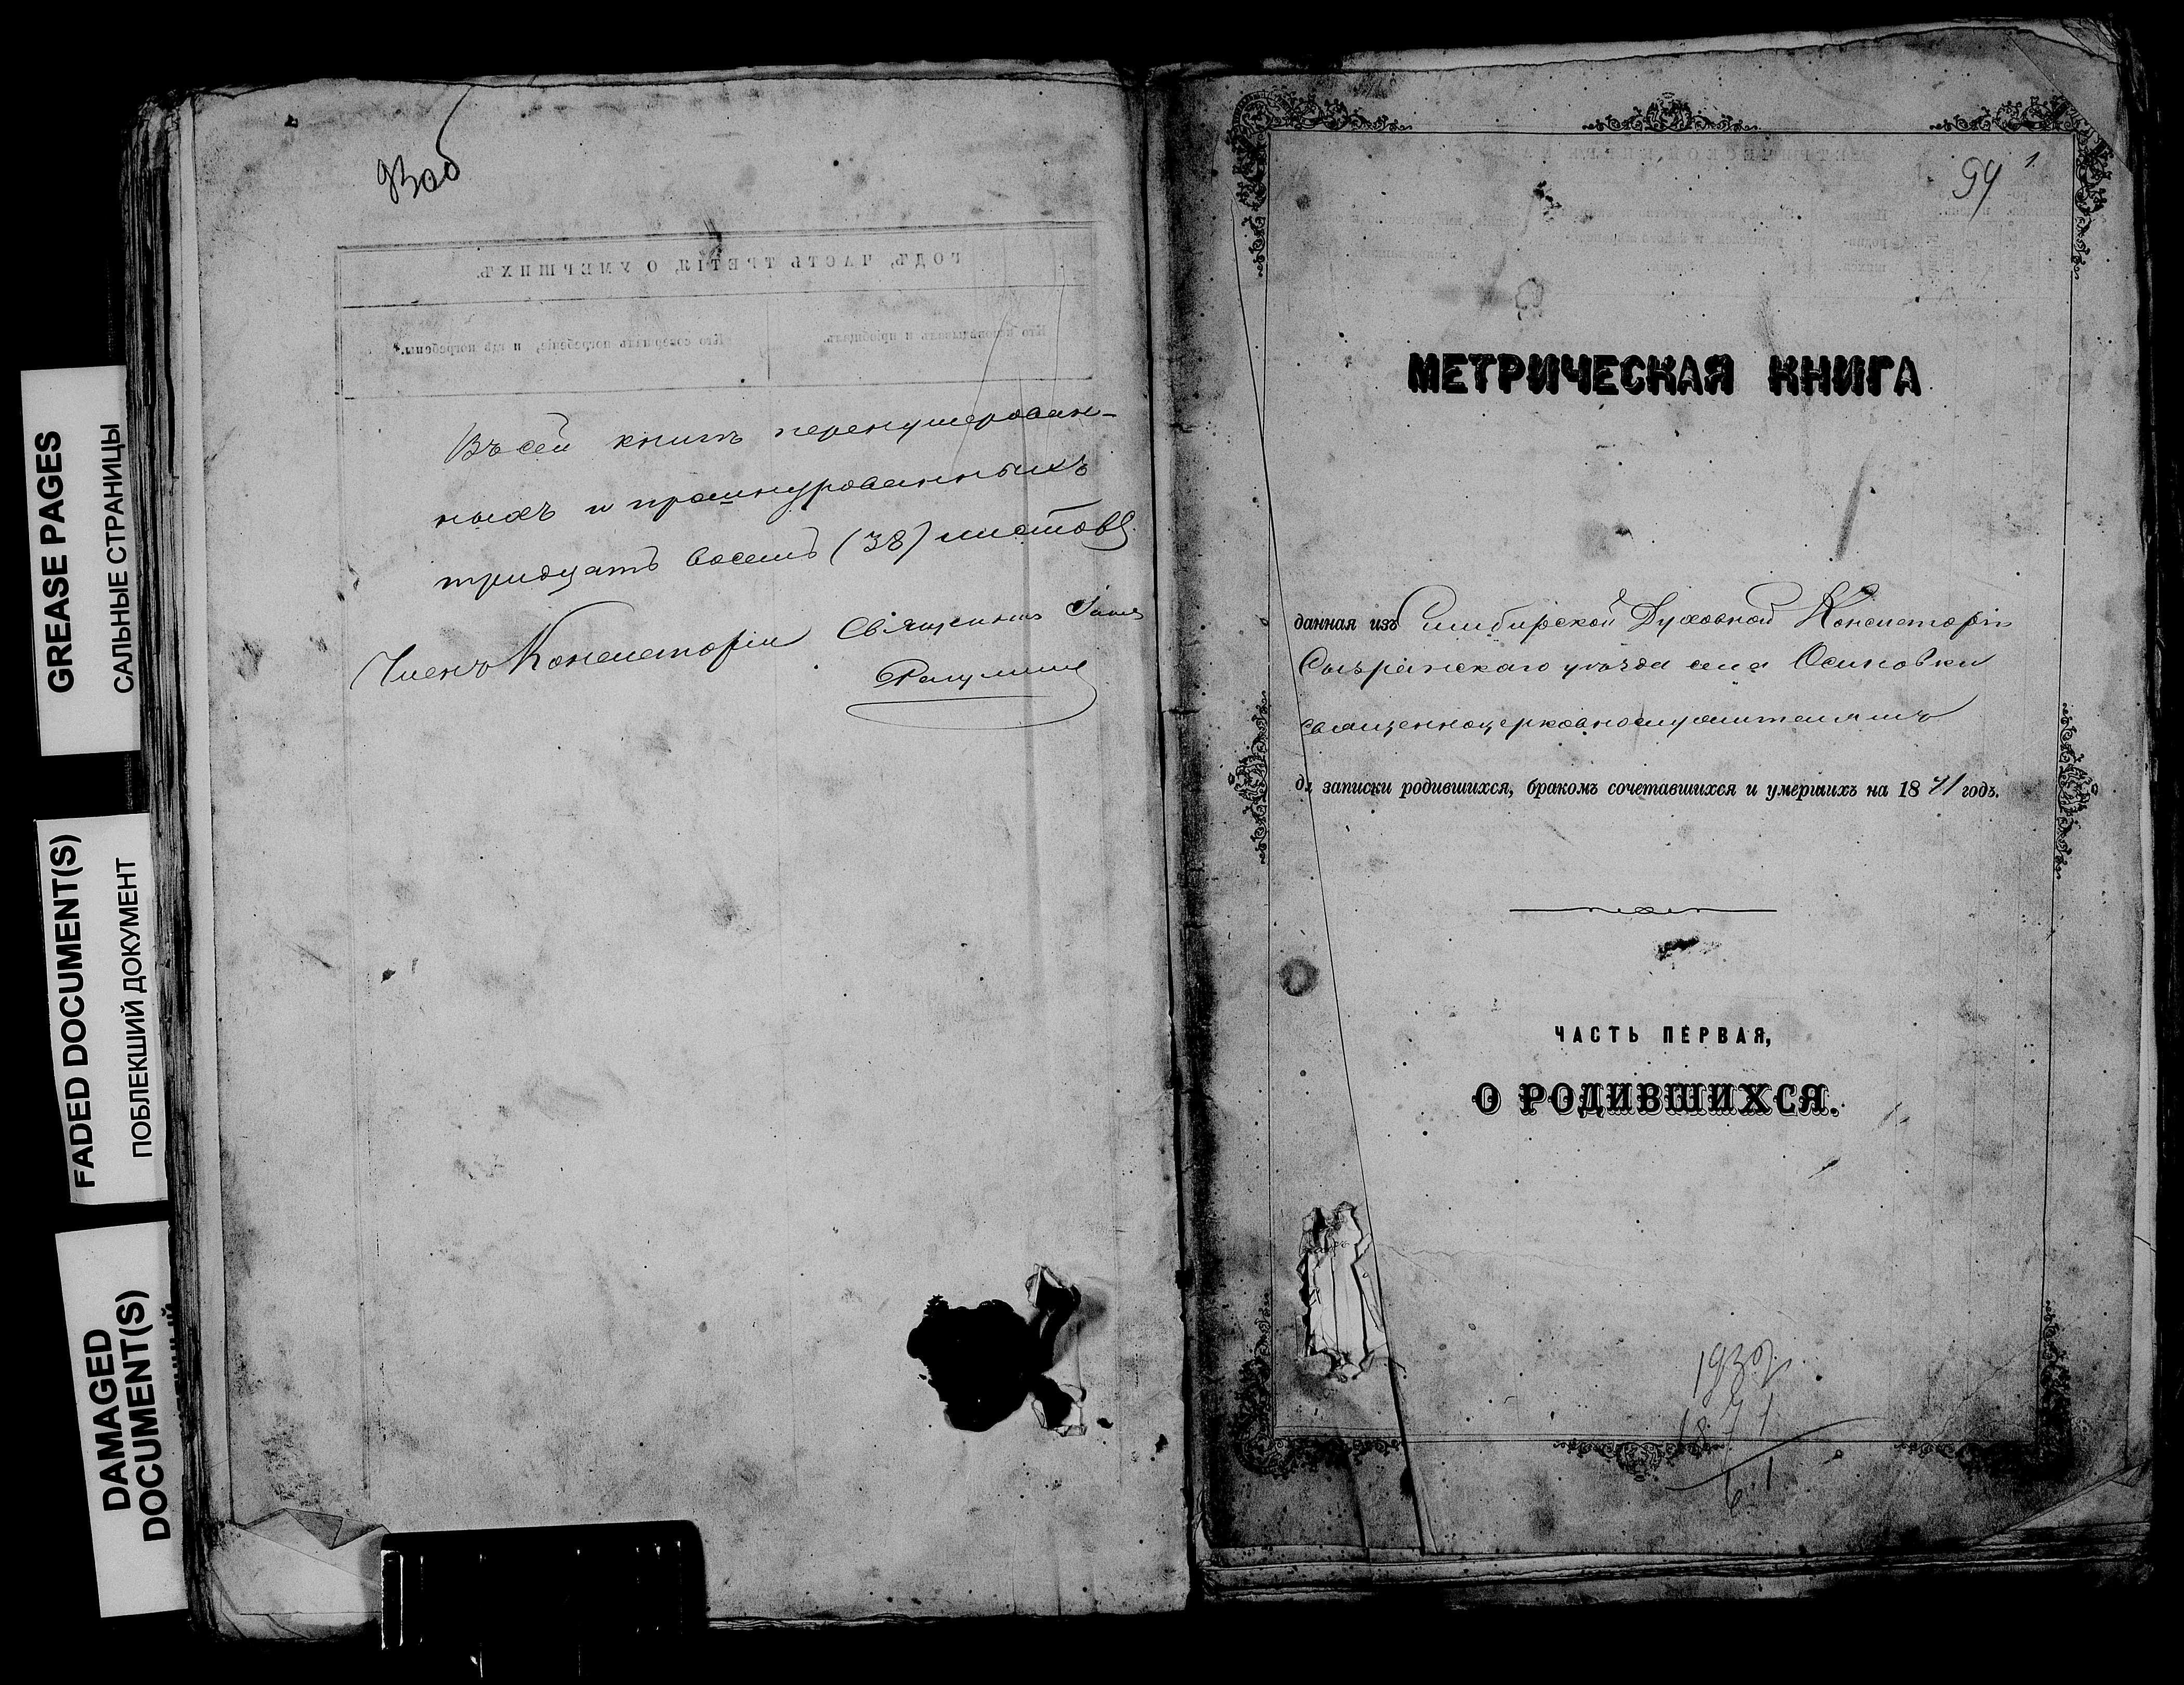 GREASE PAGES
САЛЬНЫЕ СТРАНИЦЫ
FADED DOCUMENT(S)
ПОБЛЕКШИЙ ДОКУМЕНТ
DAMAGED
DOCUMENT(S)
93об
ГОДЪ, ЧАСТЬ ТРЕТІЯ, О УМЕРШИХЪ.
Кто исповѣдывалъ и пріобщалъ.
Кто совершалъ погребеніе, и гдѣ погребены.
Въ сей книгѣ перенумерован-
ныхъ и прошнурованныхъ
тридцать восемь (38) листовъ.
Членъ Консисторіи Священникъ
94 1
МЕТРИЧЕСКАЯ КНИГА
данная изъ Симбирской Духовной Консисторіи
Сызранскаго уѣзда села Осиновки
священноцерковнослужителямъ
для записки родившихся, бракомъ сочетавшихся и умершихъ на 1871 годъ.
ЧАСТЬ ПЕРВАЯ,
О РОДИВШИХСЯ.
1932
1871
61